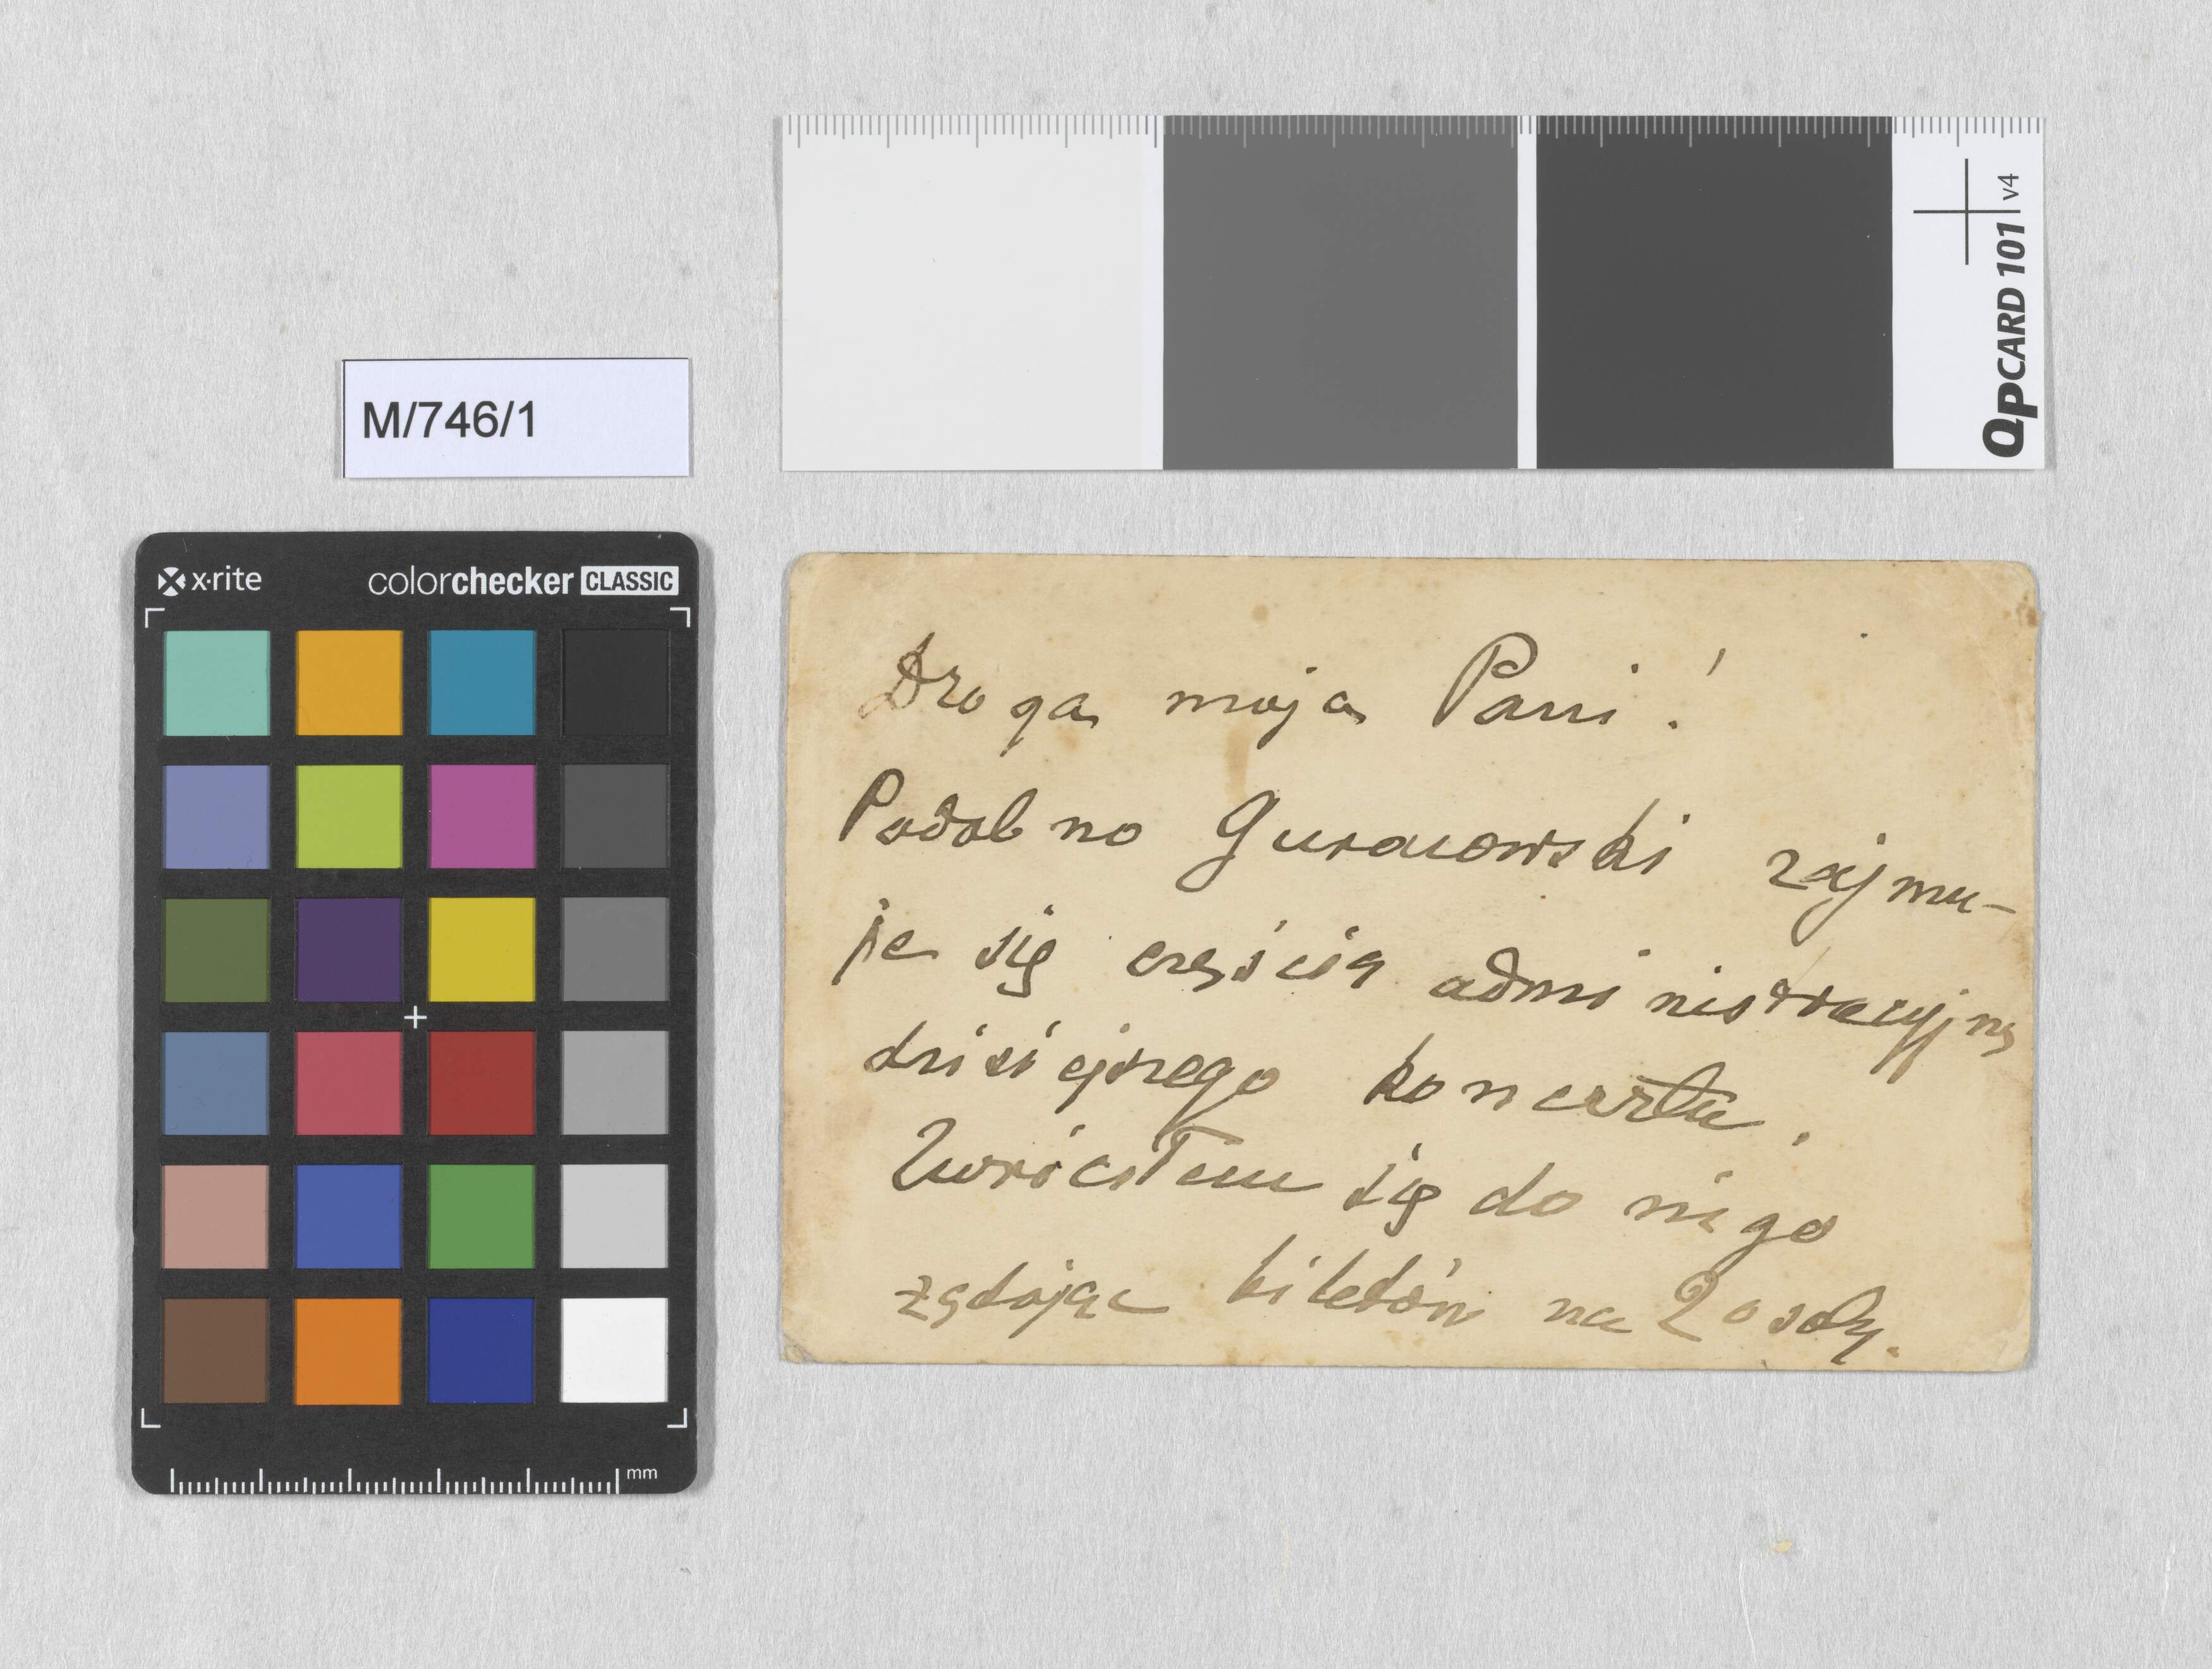 M/746/1
QPCARD 101 v4
x·rite colorchecker CLASSIC
mm
Droga moja Pani!
Podobno zajmu-
je się częścią administracyjną
dzisiejszego koncertu.
Zwróciłem się do niego
żądając biletów na 2 osoby.